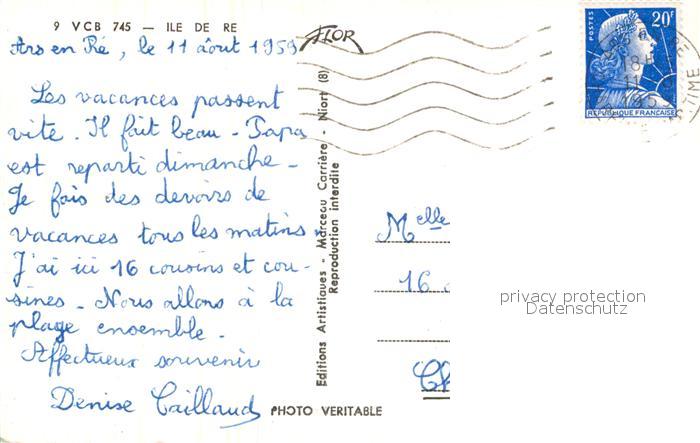 9 VCB 745 — ILE DE RE
Ars en Ré, le 11 août 1959
FLOR
POSTES 20F
18H
11
REPUBLIQUE FRANÇAISE
Les vacances passent
vite. Il fait beau - Papa
est reparti dimanche -
Je fais des devoirs de
vacances tous les matins.
J'ai ici 16 cousins et cou-
sines - Nous allons à la
plage ensemble.
Affectueux souvenir
Denise Caillaud
Editions Artistiques - Marceau Carrière - Niort (8)
Reproduction interdite
PHOTO VERITABLE
Melle
16
privacy protection
Datenschutz